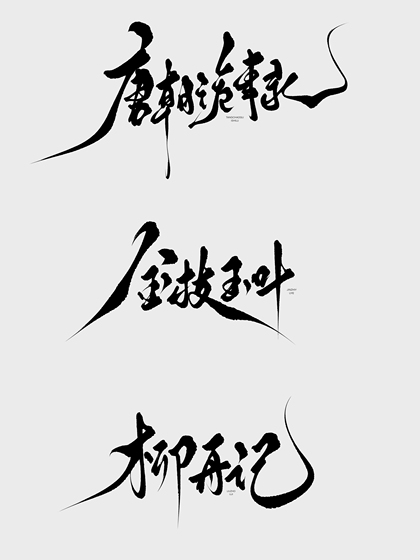 唐朝诡事录
金枝玉叶
柳再记